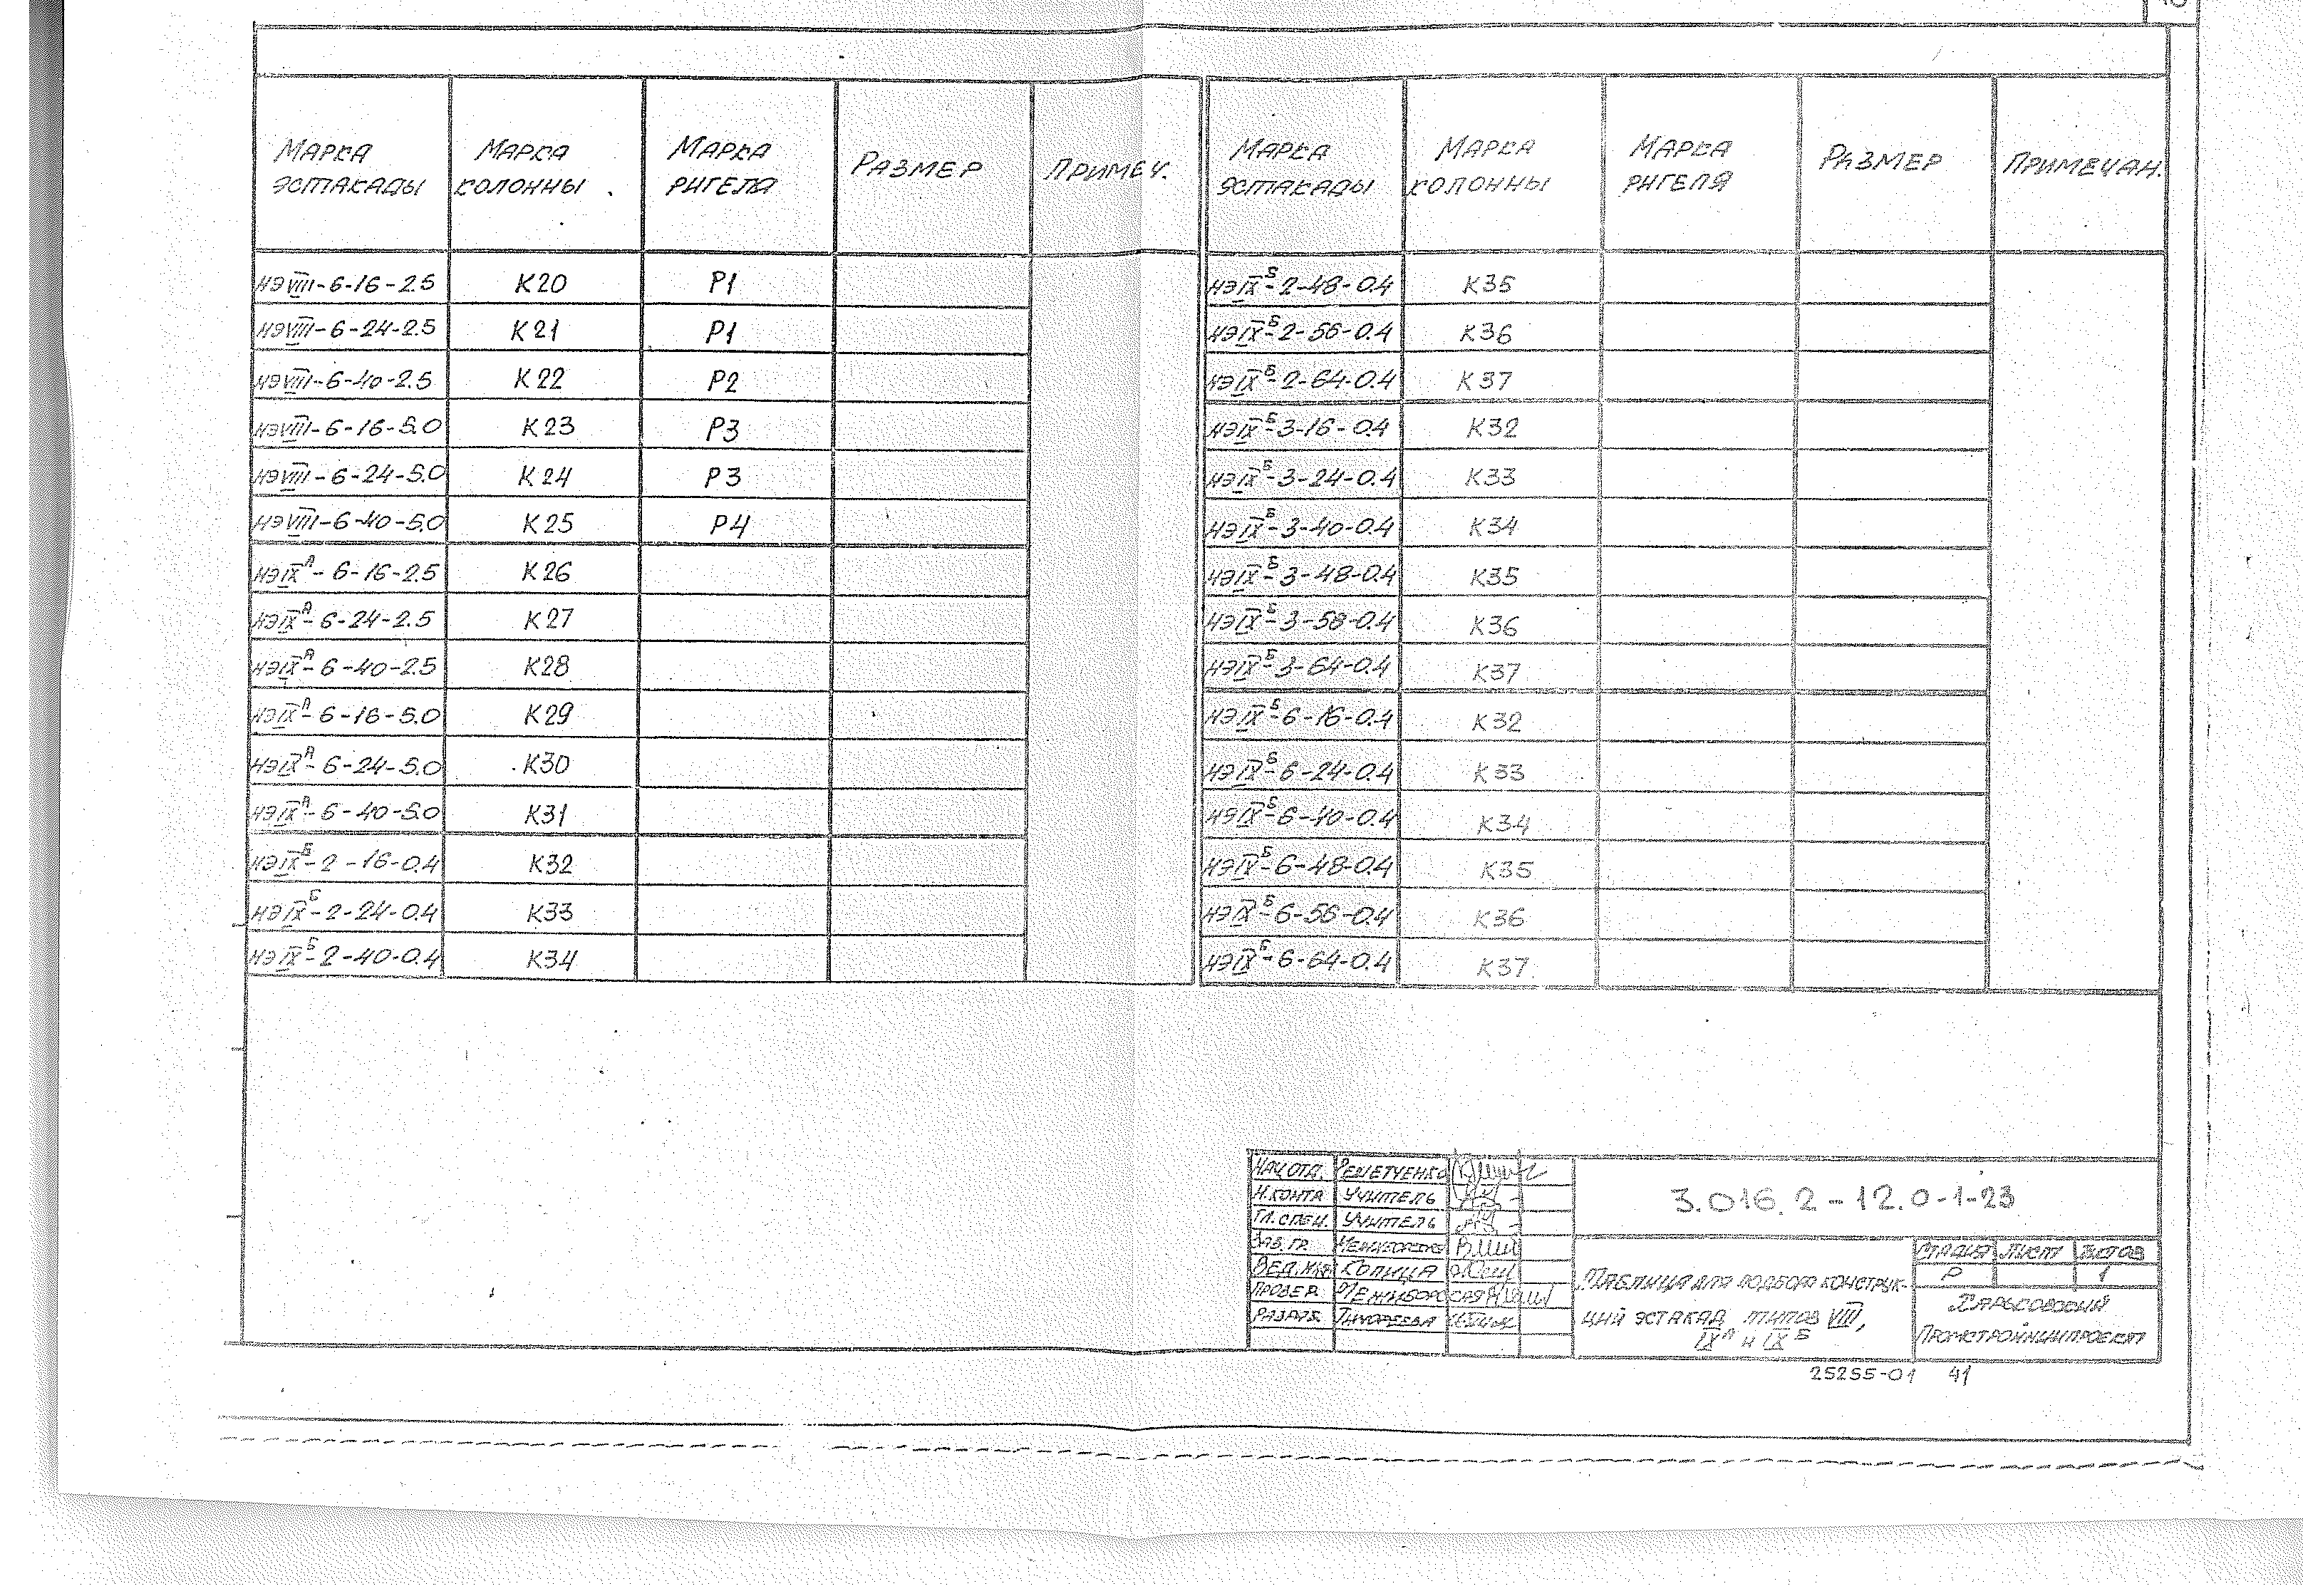 МАРКА ЭСТАКАДЫ МАРКА КОЛОННЫ МАРКА РИГЕЛЯ РАЗМЕР ПРИМЕЧ.
НЭVIII-6-16-2.5 К20 Р1
НЭVIII-6-24-2.5 К21 Р1
НЭVIII-6-40-2.5 К22 Р2
НЭVIII-6-16-5.0 К23 Р3
НЭVIII-6-24-5.0 К24 Р3
НЭVIII-6-40-5.0 К25 Р4
НЭIXᴬ-6-16-2.5 К26
НЭIXᴬ-6-24-2.5 К27
НЭIXᴬ-6-40-2.5 К28
НЭIXᴬ-6-16-5.0 К29
НЭIXᴬ-6-24-5.0 К30
НЭIXᴬ-6-40-5.0 К31
НЭIXБ-2-16-0.4 К32
НЭIXБ-2-24-0.4 К33
НЭIXБ-2-40-0.4 К34
МАРКА ЭСТАКАДЫ МАРКА КОЛОННЫ МАРКА РИГЕЛЯ РАЗМЕР ПРИМЕЧАН.
НЭIXБ-2-48-0.4 К35
НЭIXБ-2-56-0.4 К36
НЭIXБ-2-64-0.4 К37
НЭIXБ-3-16-0.4 К32
НЭIXБ-3-24-0.4 К33
НЭIXБ-3-40-0.4 К34
НЭIXБ-3-48-0.4 К35
НЭIXБ-3-58-0.4 К36
НЭIXБ-3-64-0.4 К37
НЭIXБ-6-16-0.4 К32
НЭIXБ-6-24-0.4 К33
НЭIXБ-6-40-0.4 К34
НЭIXБ-6-48-0.4 К35
НЭIXБ-6-56-0.4 К36
НЭIXБ-6-64-0.4 К37
НАЧ.ОТД. РЕШЕТЧЕНКО
Н.КОНТР. УЧИТЕЛЬ
ГЛ.СПЕЦ. УЧИТЕЛЬ
ЗАВ.ГР.
ВЕД.ИНЖ КОПИЦА
ПРОВЕР. МЕЖИБОРСКАЯ
РАЗРАБ.
3.016.2-12.0-1-23
ТАБЛИЦА ДЛЯ ПОДБОРА КОНСТРУК-
ЦИЙ ЭСТАКАД ТИПОВ VIII,
IXᴬ И IXБ
СТАДИЯ ЛИСТ ЛИСТОВ
Р 1
ХАРЬКОВСКИЙ
ПРОМСТРОЙНИИПРОЕКТ
25255-01 41